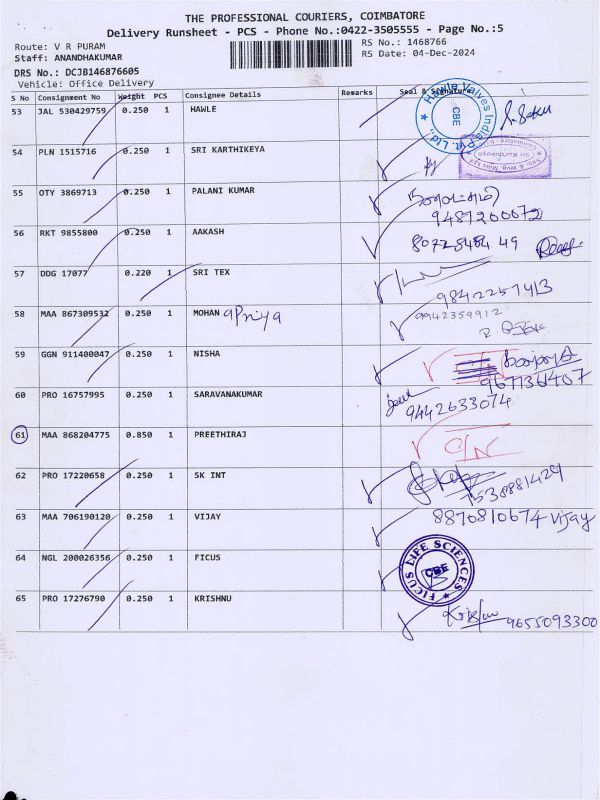 THE PROFESSIONAL COURIERS, COIMBATORE
Delivery Runsheet - PCS - Phone No.:0422-3505555 - Page No.:5
Route: V R PURAM
RS No.: 1468766
Staff: ANANDHAKUMAR
RS Date: 04-Dec-2024
DRS No.: DCJB146876605
Vehicle: Office Delivery
S No Consignment No Weight PCS Consignee Details Remarks Seal & Signature
53 JAL 530429759 0.250 1 HAWLE
Hawle Valves India Pvt. Ltd., CBE
54 PLN 1515716 0.250 1 SRI KARTHIKEYA
Sri Karthikeya
55 OTY 3869713 0.250 1 PALANI KUMAR
9487200672
56 RKT 9855800 0.250 1 AAKASH 80728484 49
57 DDG 17077 0.220 1 SRI TEX
9842257413
58 MAA 867309532 0.250 1 MOHAN apriya 9942359912
59 GGN 911400047 0.250 1 NISHA
9677136407
60 PRO 16757995 0.250 1 SARAVANAKUMAR 9442633074
61 MAA 868204775 0.850 1 PREETHIRAJ
62 PRO 17220658 0.250 1 SK INT
7538881429
63 MAA 706190120 0.250 1 VIJAY 8870810674 Vijay
64 NGL 200026356 0.250 1 FICUS
FICUS LIFE SCIENCES CBE
65 PRO 17276790 0.250 1 KRISHNU
9655093300